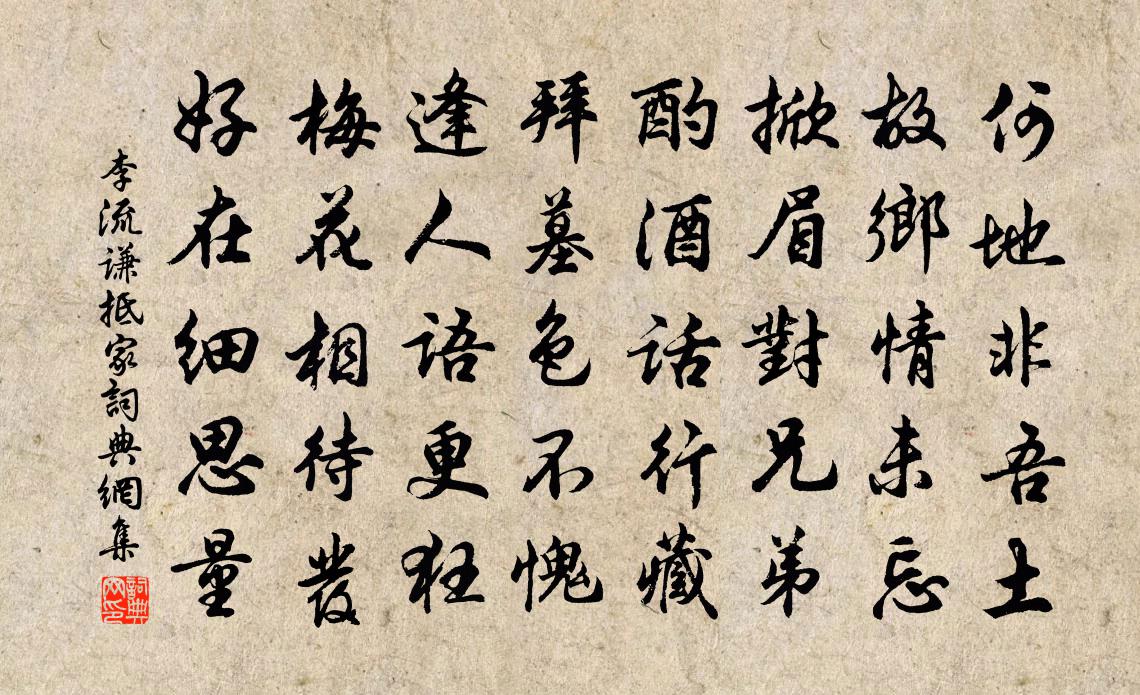 何地非吾土
故鄉情未忘
掀眉對兄弟
酌酒話行藏
拜墓色不愧
逢人語更狂
梅花相待發
好在細思量
李流谦抵家詞典網集
詞典網印